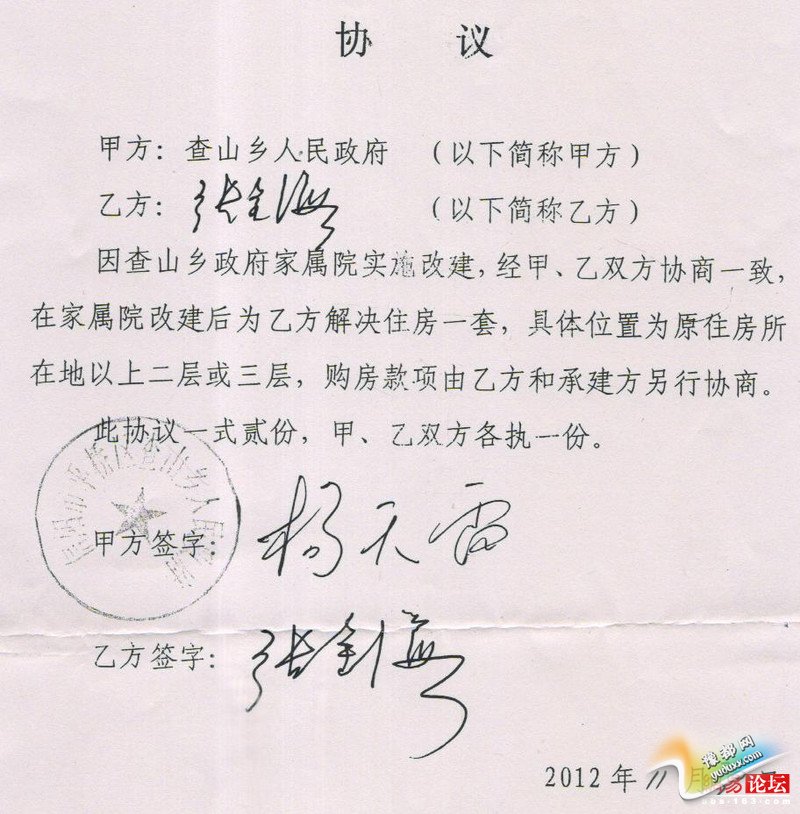 协 议
甲方：查山乡人民政府 （以下简称甲方）
乙方：张金海 （以下简称乙方）
因查山乡政府家属院实施改建，经甲、乙双方协商一致，
在家属院改建后为乙方解决住房一套，具体位置为原住房所
在地以上二层或三层，购房款项由乙方和承建方另行协商。
此协议一式贰份，甲、乙双方各执一份。
市平桥区查山乡人民
甲方签字：杨天雷
乙方签字：张金海
2012年11月
豫都网
yuduxx.com
论坛
bbs-163.com